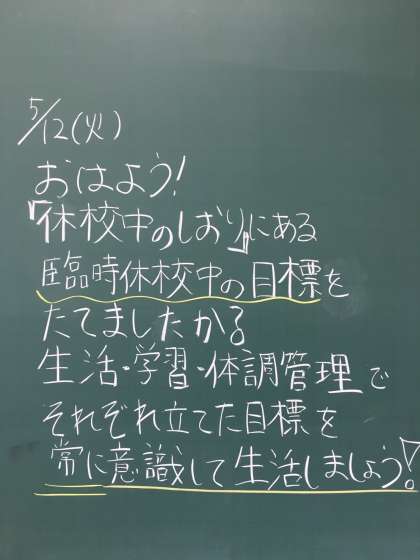 5/12(火)
おはよう!
『休校中のしおり』にある
臨時休校中の目標を
たてましたか。
生活・学習・体調管理で
それぞれ立てた目標を
常に意識して生活しましょう!